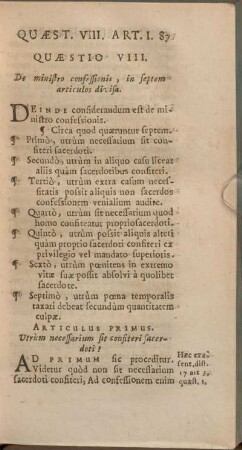 QUÆST. VIII. ART. I. 87
QUÆSTIO VIII.
De ministro confessionis, in septem
articulos divisa.
DEINDE considerandum est de mi-
nistro confessionis.
¶ Circa quod quæruntur septem.
¶ Primò, utrùm necessarium sit con-
fiteri sacerdoti.
¶ Secundò, utrùm in aliquo casu liceat
aliis quàm sacerdotibus confiteri.
¶ Tertiò, utrùm extra casum neces-
sitatis possit aliquis non sacerdos
confessionem venialium audire.
¶ Quartò, utrùm sit necessarium quod
homo confiteatur proprio sacerdoti.
¶ Quintò, utrùm possit aliquis alteri
quàm proprio sacerdoti confiteri ex
privilegio vel mandato superioris.
¶ Sextò, utrùm pœnitens in extremo
vitæ suæ possit absolvi à quolibet
sacerdote.
¶ Septimò, utrùm pœna temporalis
taxari debeat secundùm quantitatem
culpæ.
ARTICULUS PRIMUS.
Utrùm necessarium sit confiteri sacer-
doti?
AD PRIMUM sic proceditur.
Videtur quòd non sit necessarium
sacerdoti confiteri; Ad confessionem enim
Hæc
sent. dist.
17
quæst. 1.